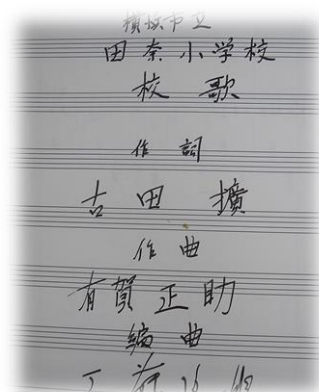 横浜市立
田奈小学校
校歌
作詞
古田 擴
作曲
有賀正助
編曲